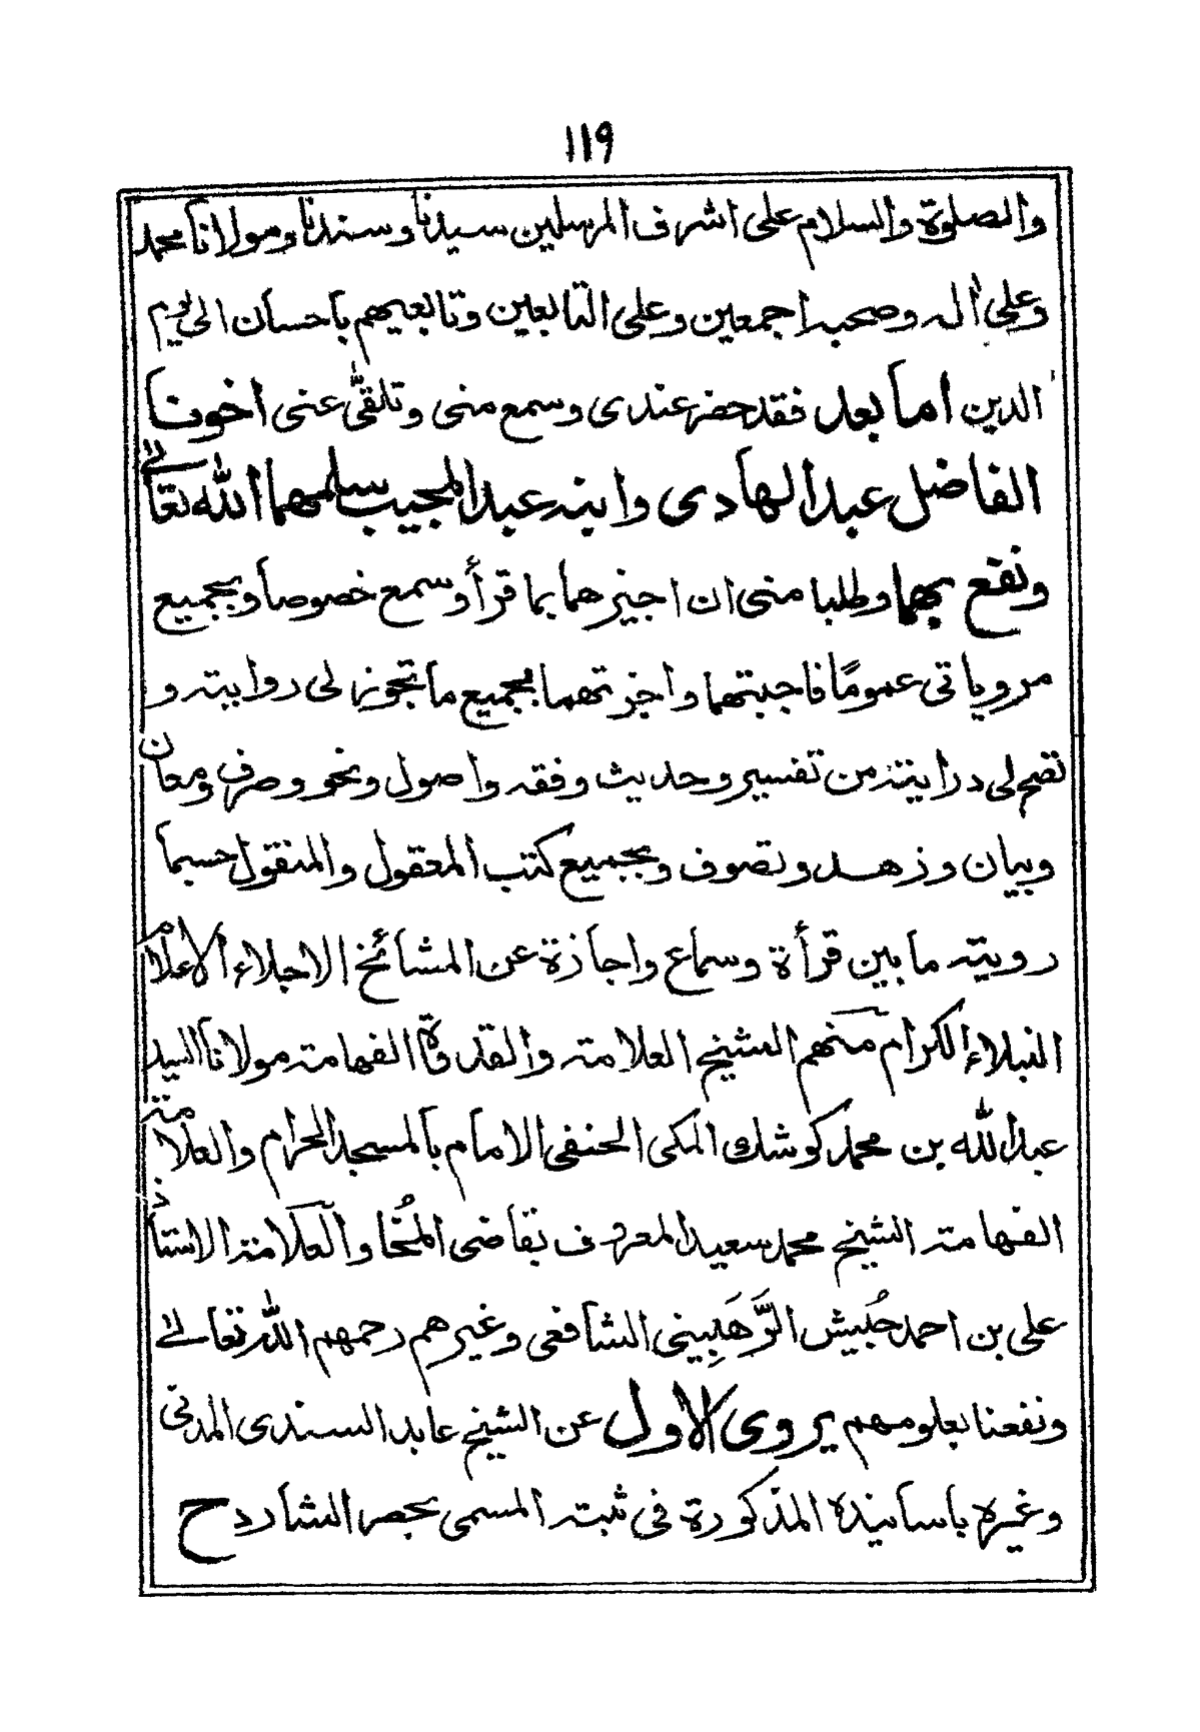 ١١٩
والصلوة والسلام على اشرف المرسلين سيدنا وسندنا ومولانا محمد
وعلى أله وصحبه اجمعين وعلى التابعين وتابعيهم باحسان الى يوم
الدين اما بعد فقد حضر عندى وسمع منى وتلقّى عنى اخونا
الفاضل عبد الهادى وابنه عبد المجيب سلمهما الله تعالے
ونفع بهما وطلبا منى ان اجيزهما بما قرأ وسمع خصوصا وبجميع
مروياتى عمومًا فاجبتهما واجزتهما بجميع ما تجوز لى روايته و
تصح لى درايته من تفسير وحديث وفقه واصول ونحو وصرف ومعان
وبيان وزهد وتصوف وبجميع كتب المعقول والمنقول حسبما
رويته ما بين قرأة وسماع واجازة عن المشائخ الاجلاء الاعلام
النبلاء الكرام منهم الشيخ العلامة والقدوة الفهامة مولانا السيد
عبد الله بن محمد كوشك المكى الحنفى الامام بالمسجد الحرام والعلامة
الفهامة الشيخ محمد سعيد المعروف بقاضى المُخا والعلامة الاستاذ
على بن احمد حُبيش الرَّهَبِينى الشافعى وغيرهم رحمهم الله تعالے
ونفعنا بعلومهم يروى الاول عن الشيخ عابد السندى المدنى
وغيره باسانيده المذكورة فى ثبته المسمى بحصر الشارد ح